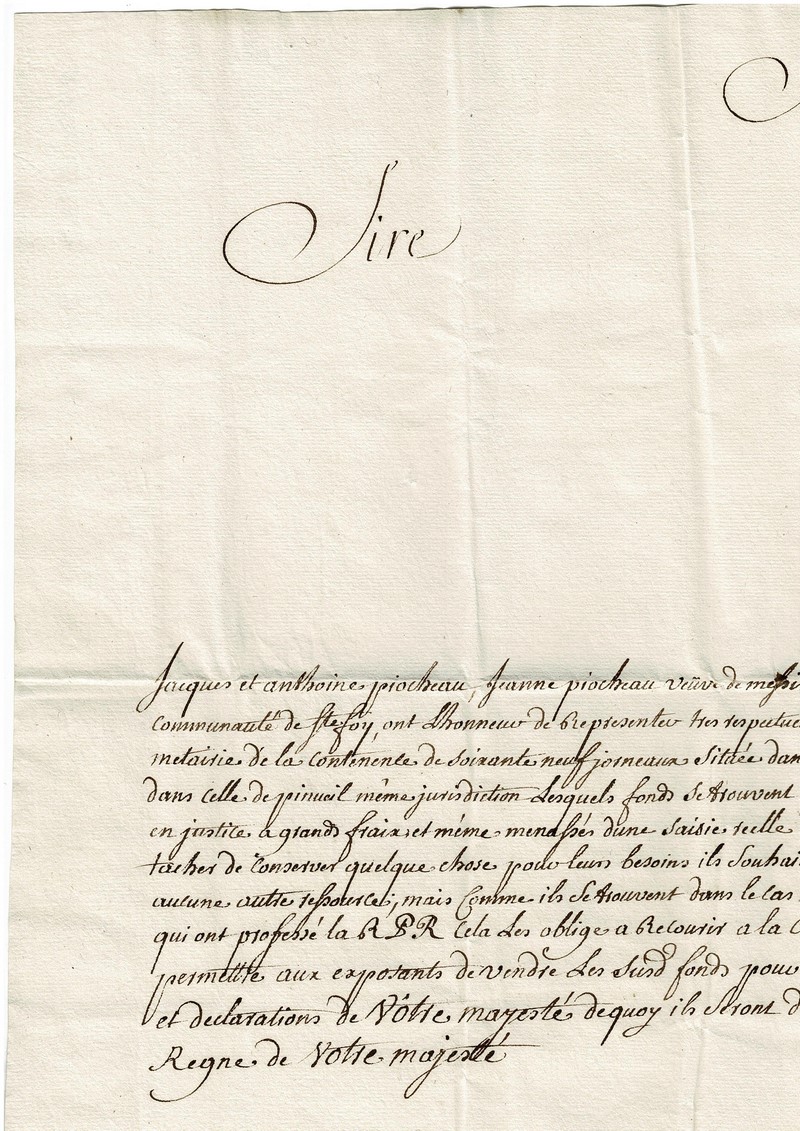 Sire
Jacques et anthoine piocheau, Jeanne piocheau veüve de messi
Communauté de Ste foy, ont Lhonneur de Representer tres respectue
metairie de la contenence de soixante neuf jorneaux Située dan
dans celle de pinueil même jurisdiction Lesquels fonds se trouvent
en justice a grands fraix et même menassés dune saisie reelle
tacher de Conserver quelque chose pour leurs besoins ils souhai
aucune autre ressource, mais Comme ils se trouvent dans le cas
qui ont professé la RPR Cela Les oblige a Recourir a la
permettre aux exposants de vendre Les susd fonds pour
et declarations de Vôtre mayesté dequoy ils seront d
Regne de Votre majesté